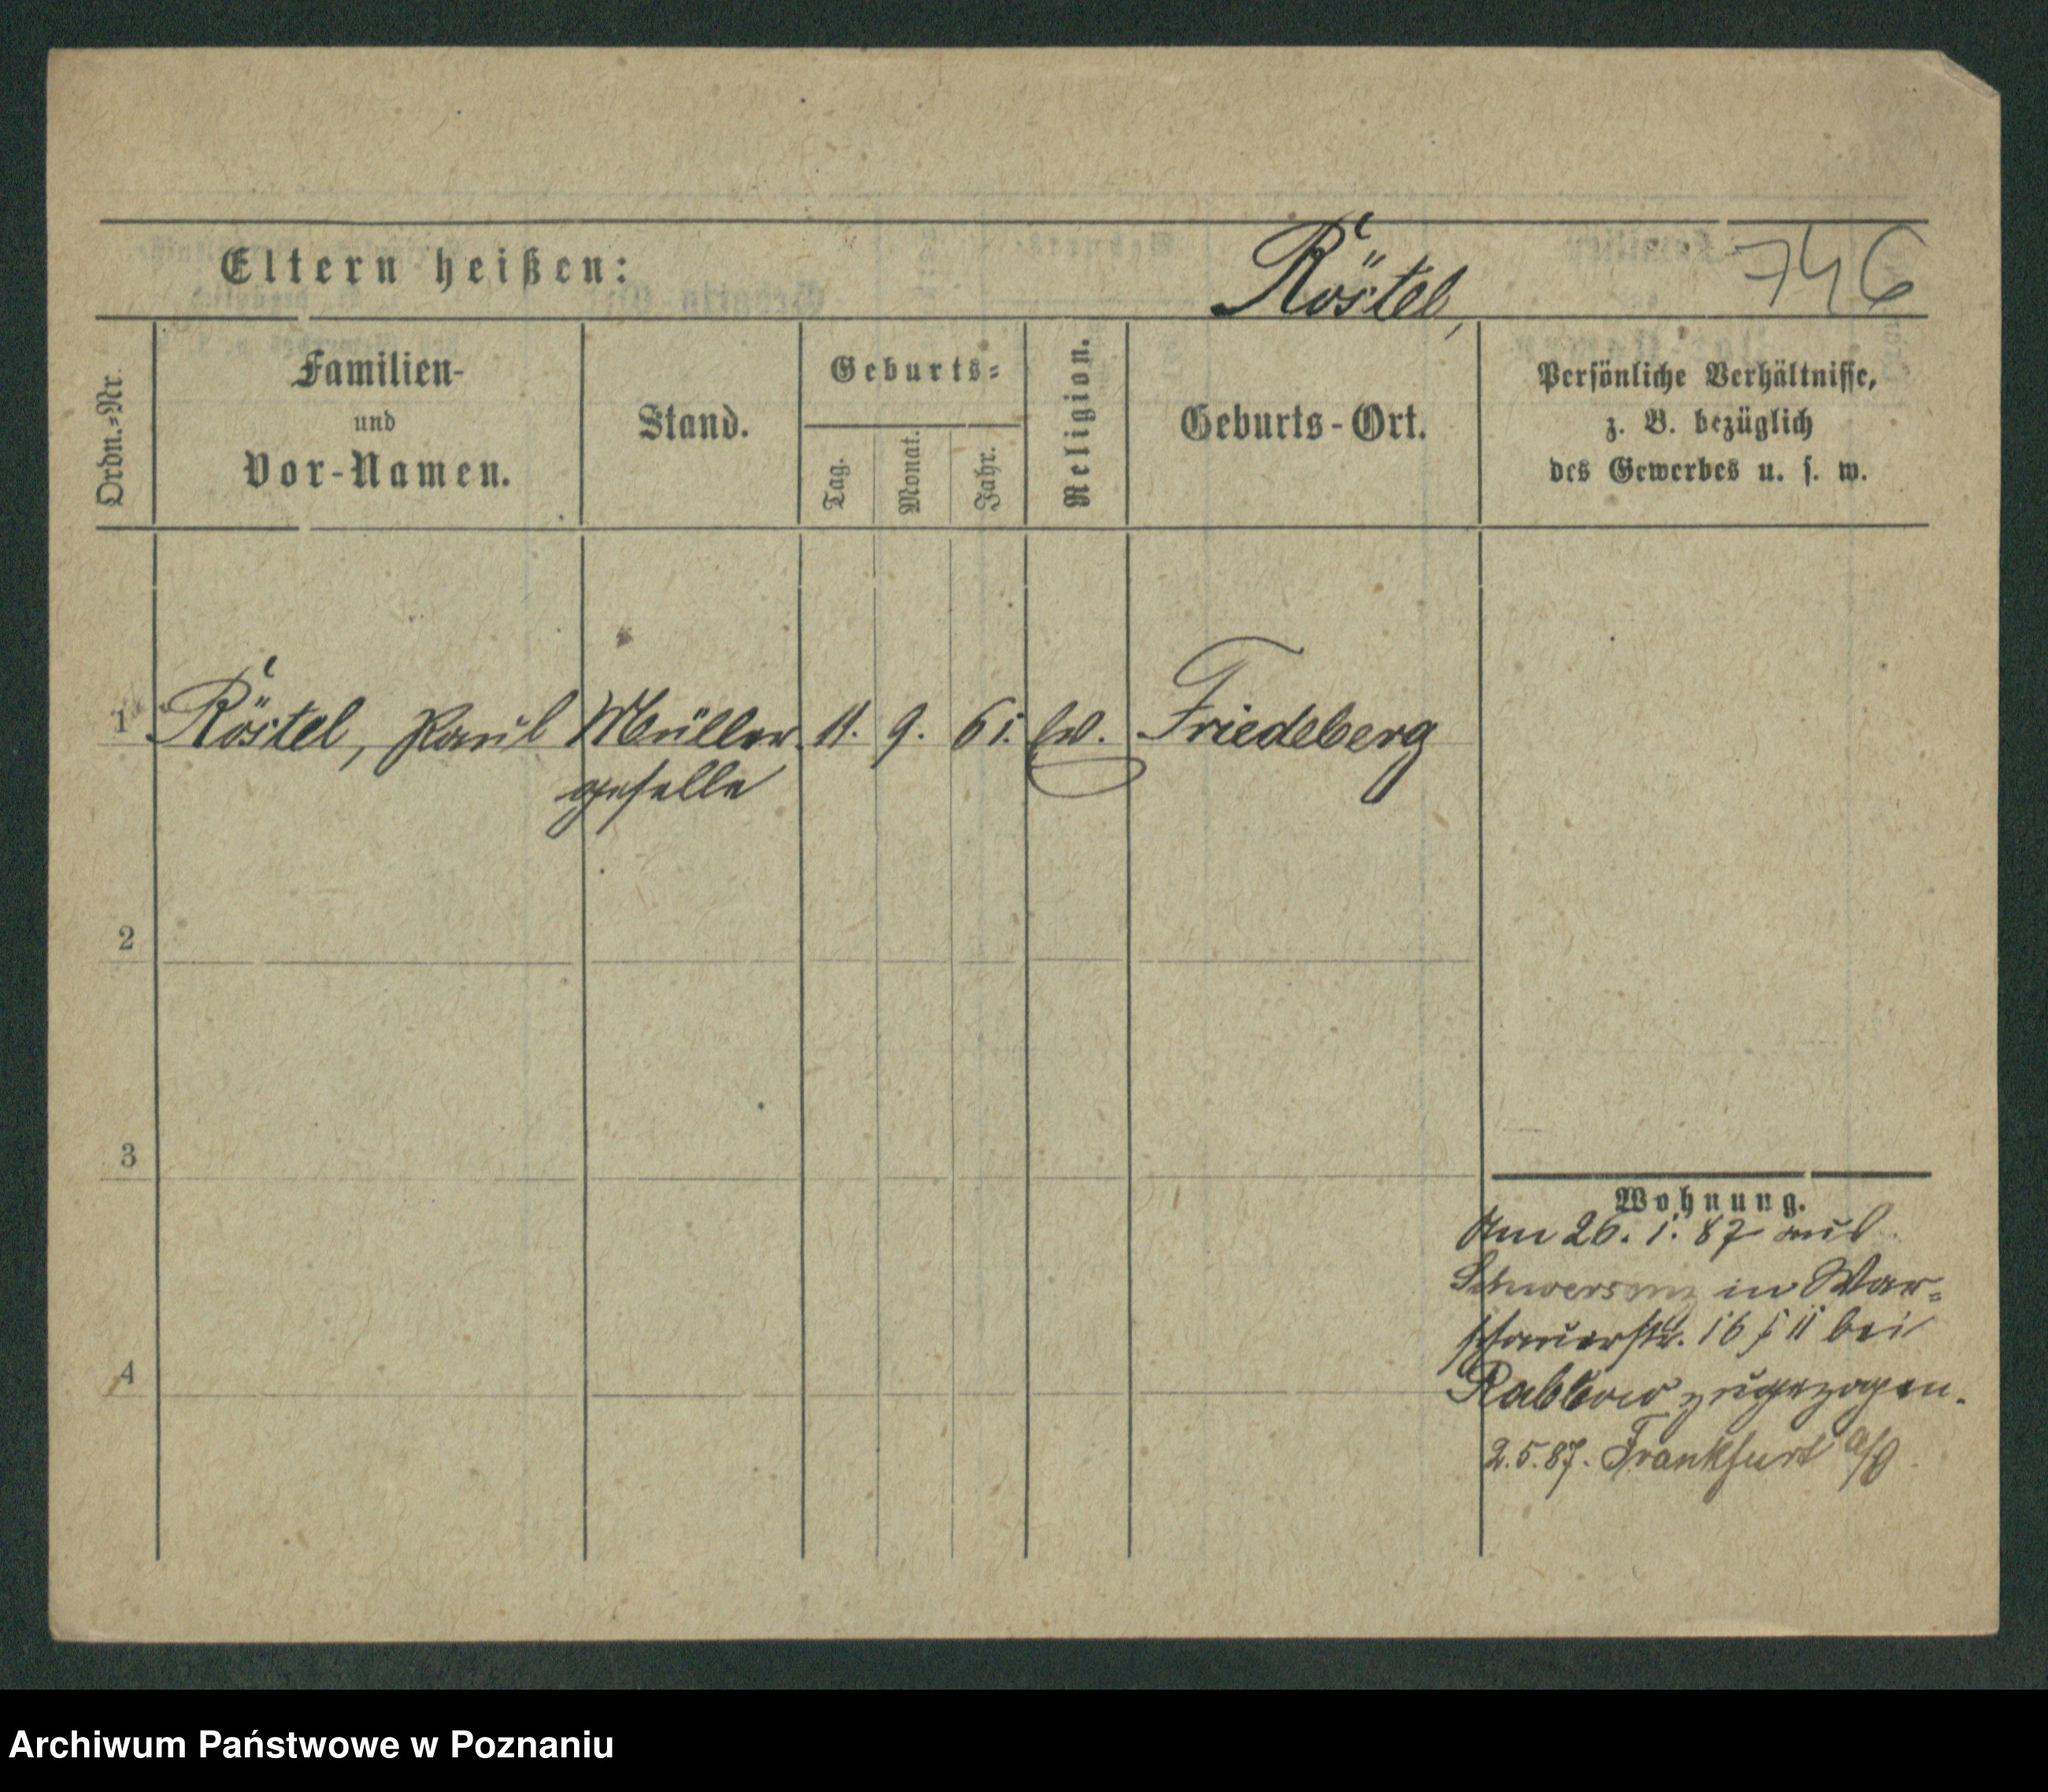 Eltern heißen: Röstel, 746
Ordn.=Nr.
Familien-
und
Vor-Namen.
Stand.
Geburts=
Tag.
Monat.
Jahr.
Religion.
Geburts-Ort.
Persönliche Verhältnisse,
z. B. bezüglich
des Gewerbes u. s. w.
1 Röstel, Paul Müller 11. 9. 61. ev. Friedeberg
geselle
2
3
4
Wohnung.
Am 26. 1. 87 aus
Schwersenz in War=
schauerstr. 16 II bei
zugezogen.
2.5.87. Frankfurt a/O
Archiwum Państwowe w Poznaniu